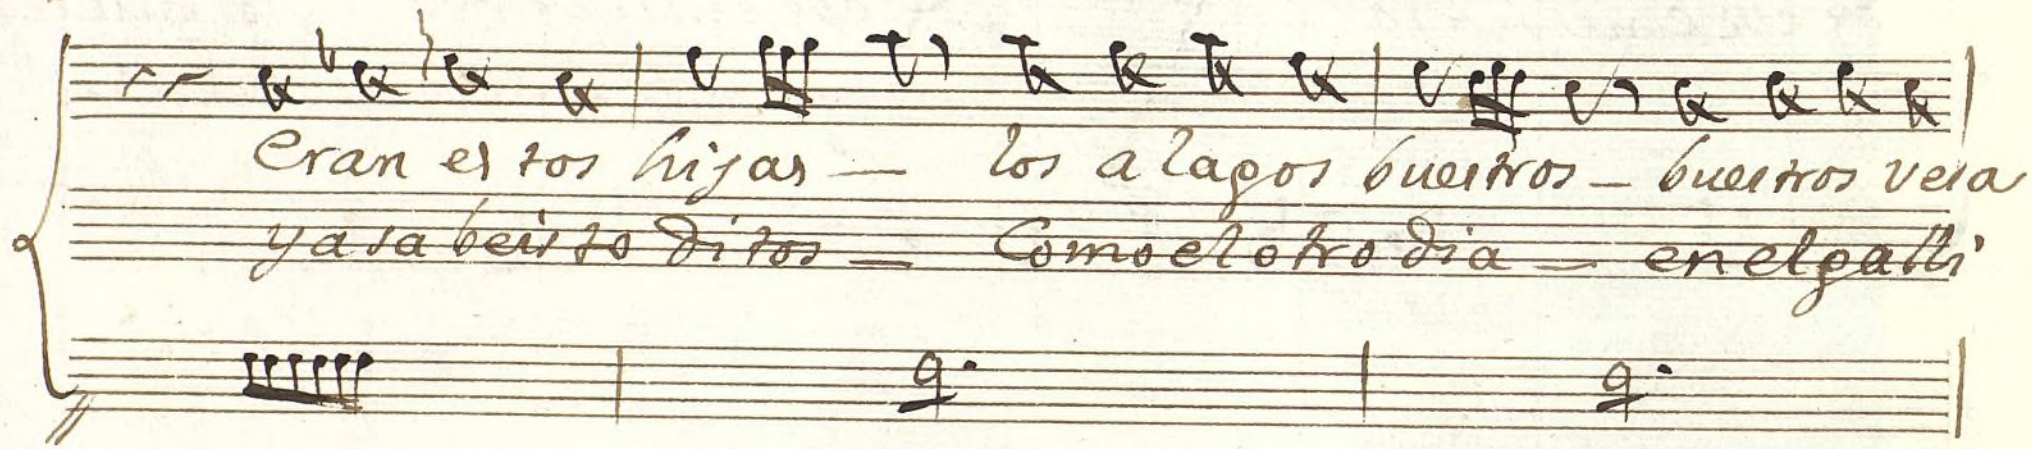 eran es tos hijas — los a lagos buestros — buestros vesa
ya sa beis to di tos — Como el otro dia — en el galli